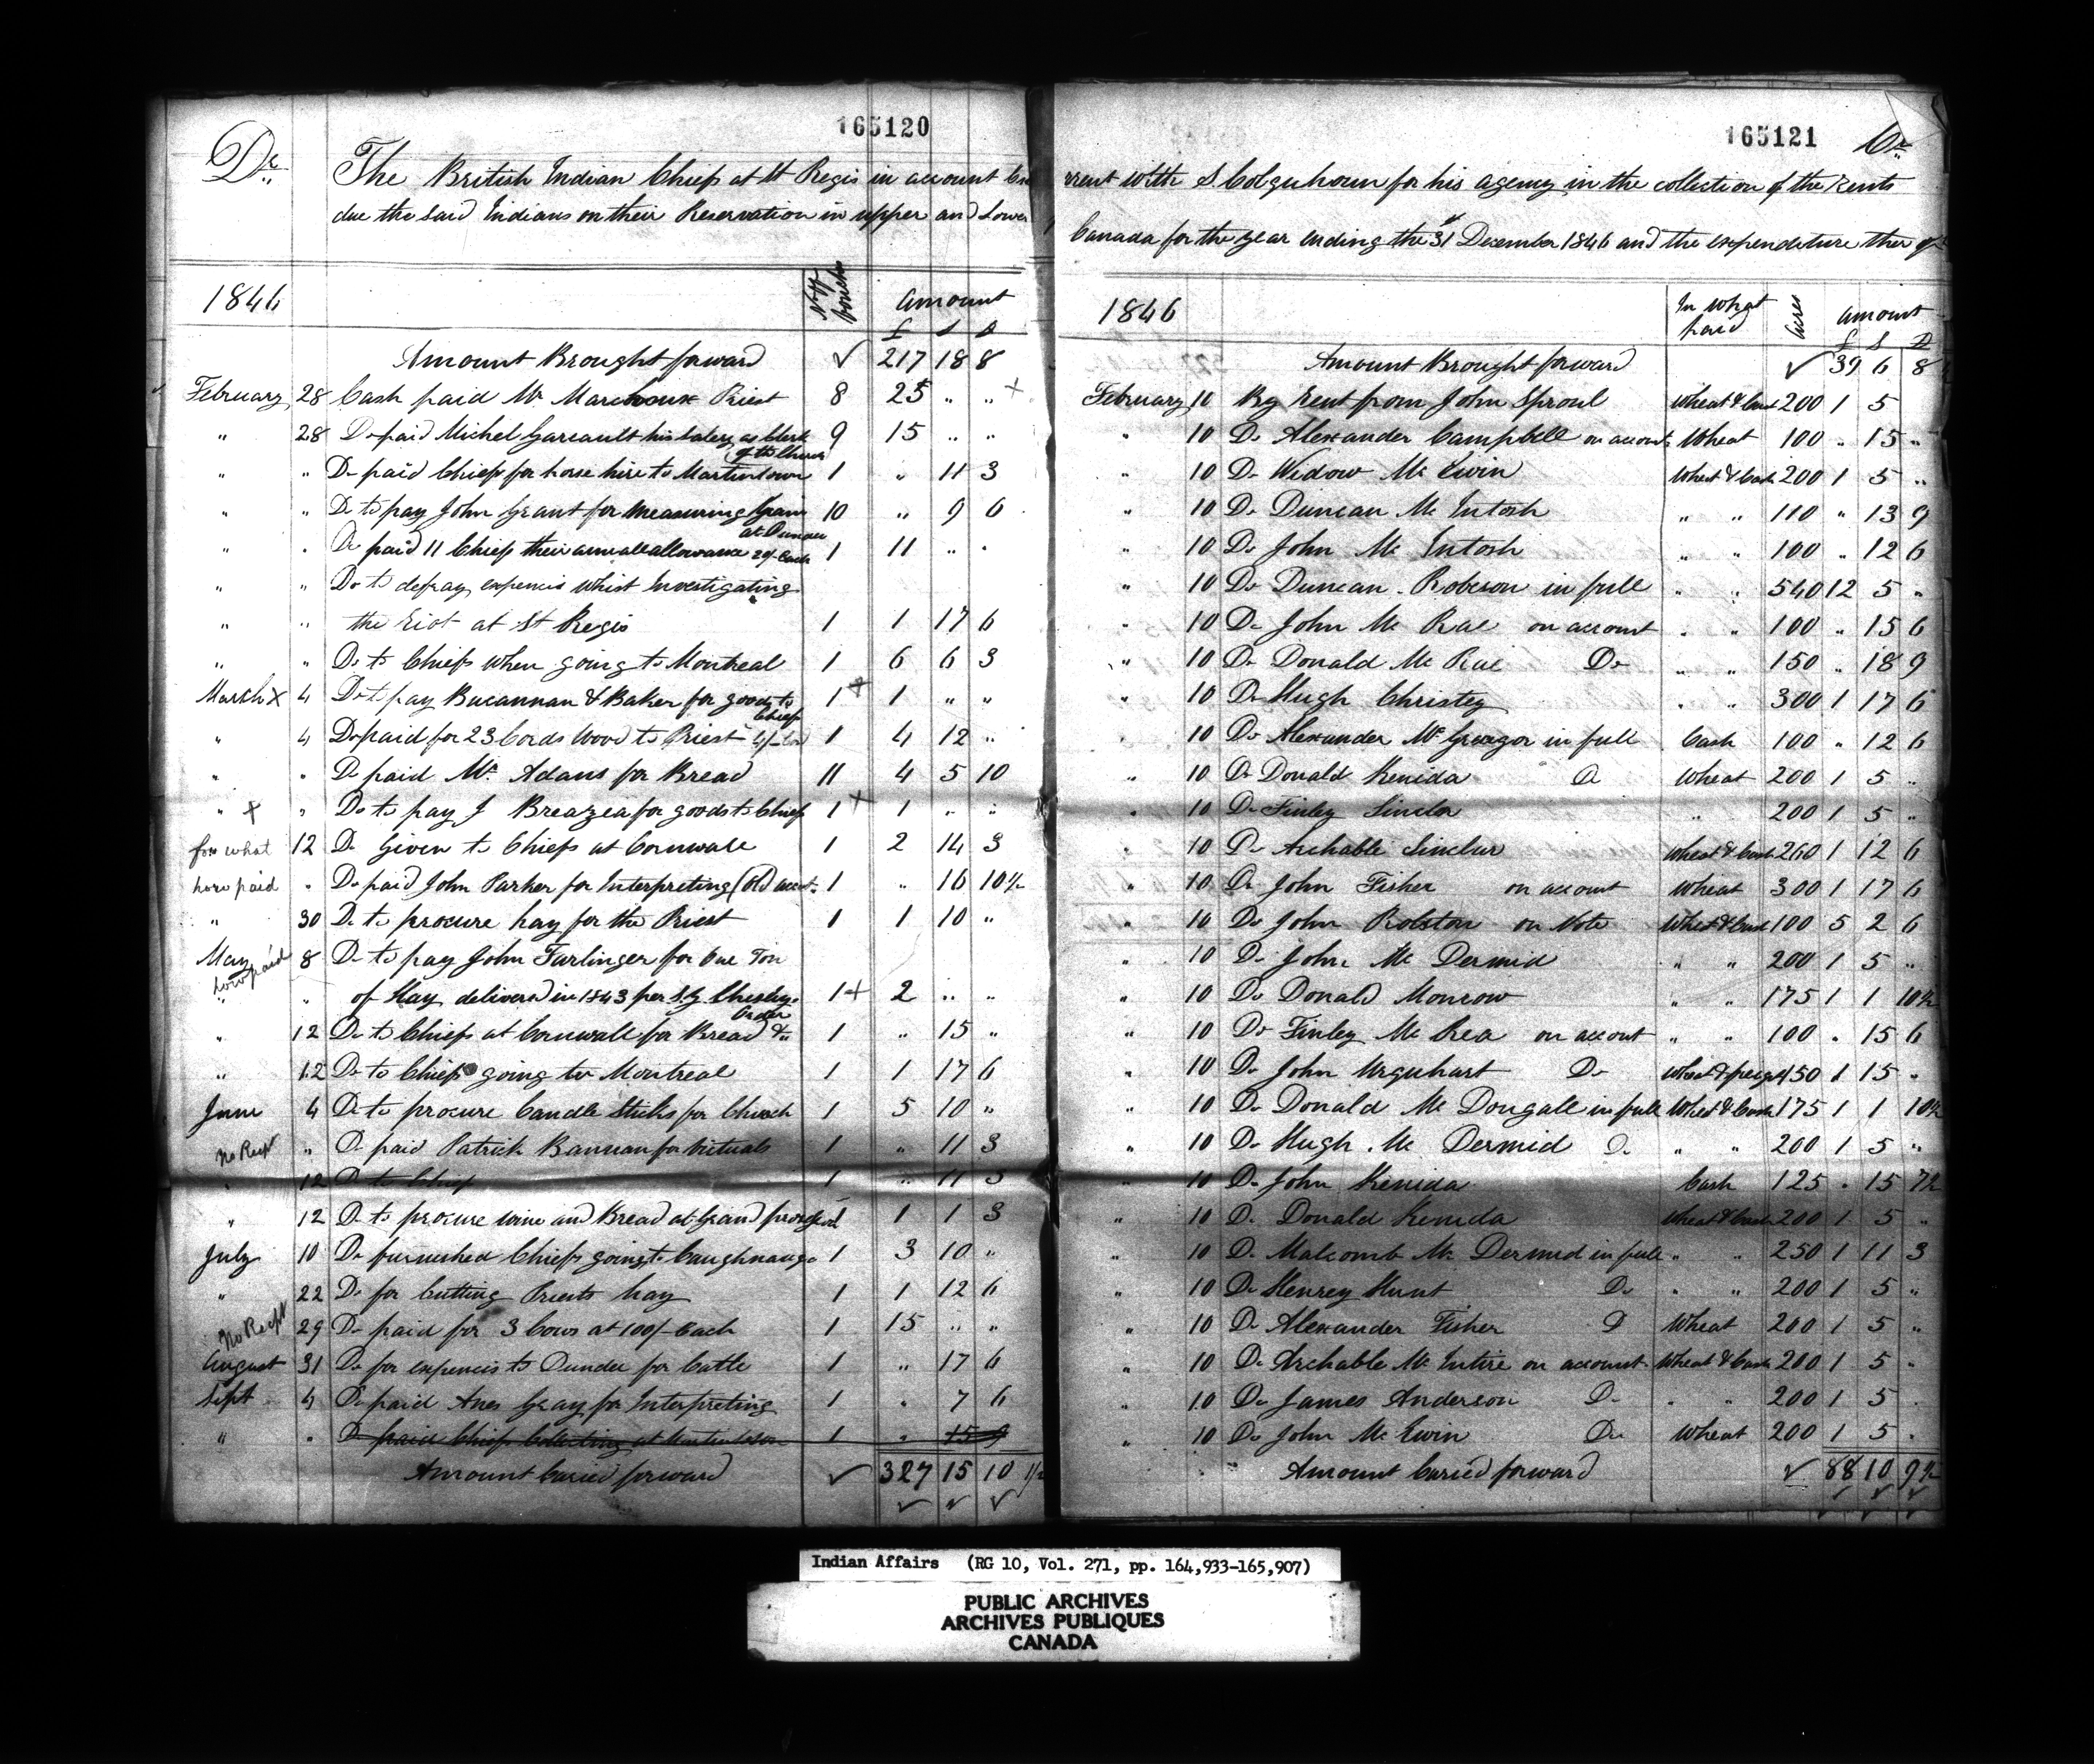 165120
Dr.
The British Indian Chiefs at St Regis in account Cu
due the said Indians on their Reservation in upper and Lower
1846 No of vouchers Amount
£ s d
Amount Brought forward ✓ 217 18 8
February 28 Cash paid Mr Marcoux Priest 8 25 " " +
" 28 Do paid Michel Gareault his salery as Clerk 9 15 " "
of the Church
" " Do paid Chiefs for horse hire to Martintown 1 " 11 3
" " Do to pay John Grant for measuring Grain 10 " 9 6
at Dundee
" " Do paid 11 Chiefs their annuall allowance 20/- Each 1 11 " "
" " Do to defray expences whist Investigating
" " the Riot at St Regis 1 1 17 6
" " Do to Chiefs when going to Montreal 1 6 6 3
March x 4 Do to pay Bucannan & Baker for goods to 1 + 1 " "
Chiefs
" 4 Do paid for 23 Cords wood to Priest 4/- Cord 1 4 12 "
" " Do paid Mr. Adams for Bread 11 4 5 10
" + " Do to pay J Breazea for goods to Chiefs 1 + 1 " "
for what 12 Do Given to Chiefs at Cornwall 1 2 14 3
how paid " Do paid John Parker for Interpreting (old acct. 1 " 16 10½
" 30 Do to procure hay for the Priest 1 1 10 "
May 8 Do to pay John Farlinger for One Ton
how paid
" " of Hay delivered in 1843 per S. Y. Chesley. 1 + 2 " "
Order
" 12 Do to Chiefs at Cornwall for Bread &c 1 " 15 "
" 12 Do to Chiefs going to Montreal 1 1 17 6
June 4 Do to procure Candle Sticks for Church 1 5 10 "
No Recpt " Do paid Patrick Bannan for vituals 1 " 11 3
" 12 Do to Chiefs 1 " 11 3
" 12 Do to procure wine and Bread at Grand 1 1 1 3
July 10 Do furnished Chiefs going to Caughnauga 1 3 10 "
" 22 Do for Cutting Priests hay 1 1 12 6
No Recpt 29 Do paid for 3 Cows at 100/- Each 1 15 " "
August 31 Do for expences to Dundee for Cattle 1 " 17 6
Sept 4 Do paid Anes Gray for Interpreting 1 " 7 6
" " Do paid Chiefs Collecting at Martintown 1 " 15 9
Amount Caried forward ✓ 327 15 10 1/2
165121
Cr.
rrent with S. Colquhoun for his agency in the collection of the Rents
Canada for the year ending the 31st December 1846 and the expenditure ther of
1846 In what paid Acres Amount
£ s D
Amount Brought forward ✓ 39 6 8
February 10 By Rent from John Sproul Wheat & Cash 200 1 5
" 10 Do Alexander Campbell on account Wheat 100 " 15 "
" 10 Do Widow Mc Ewin Wheat & Cash 200 1 5 "
" 10 Do Duncan Mc Intosh " " 110 " 13 9
" 10 Do John Mc Intosh " " 100 " 12 6
" 10 Do Duncan Robeson in full " " 540 12 5 "
" 10 Do John Mc Rae on account " " 100 " 15 6
" 10 Do Donald Mc Rae Do " " 150 " 18 9
" 10 Do Hugh Christey " " 300 1 17 6
" 10 Do Alexander Mc Greegor in full Cash 100 " 12 6
" 10 Do Donald Kenida Do Wheat 200 1 5 "
" 10 Do Finley Sinclar " 200 1 5 "
" 10 Do Archable Sinclar Wheat & Cash 260 1 12 6
" 10 Do John Fisher on account Wheat 300 1 17 6
" 10 Do John Rolston on Note Wheat & Cash 100 5 2 6
" 10 Do John Mc Dermid " " 200 1 5 "
" 10 Do Donald Monrow " " 175 1 1 10½
" 10 Do Finley Mc Crea on account " " 100 " 15 6
" 10 Do John Urquhart Do 450 1 15 "
" 10 Do Donald Mc Dougall in full Wheat & Cash 175 1 1 10½
" 10 Do Hugh Mc Dermid Do " " 200 1 5 "
" 10 Do John Kenida Cash 125 " 15 7½
" 10 Do Donald Kenida Wheat & Cash 200 1 5 "
" 10 Do Malcomb Mc Dermid in full " " 250 1 11 3
" 10 Do Henrey Hunt Do " " 200 1 5 "
" 10 Do Alexander Fisher D Wheat 200 1 5 "
" 10 Do Archable Mc Intire on account Wheat & Cash 200 1 5 "
" 10 Do James Anderson Do " " 200 1 5 "
" 10 Do John Mc Ewin Do Wheat 200 1 5 "
" " Amount Caried forward ✓ 88 10 9½
Indian Affairs (RG 10, Vol. 271, pp. 164,933-165,907)
PUBLIC ARCHIVES
ARCHIVES PUBLIQUES
CANADA